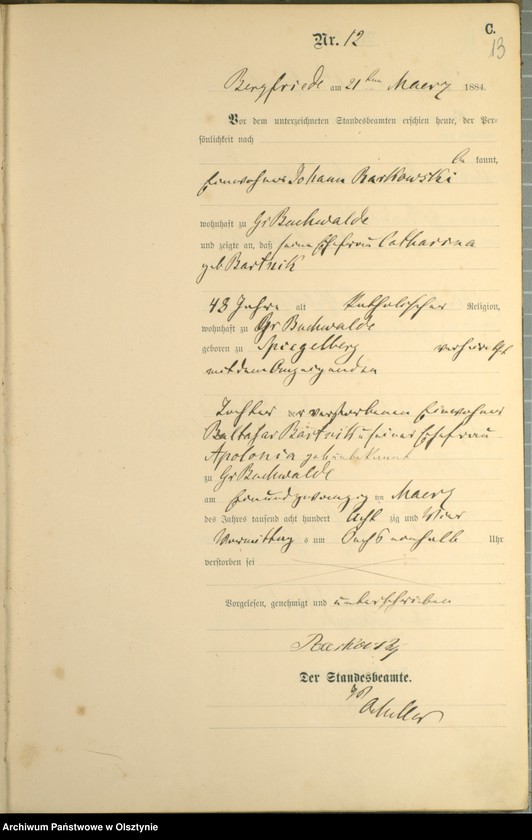 C.
13
Nr. 12
Bergfriede am 21ten Maerz 1884.
Vor dem unterzeichneten Standesbeamten erschien heute, der Per-
sönlichkeit nach
be kannt,
Einwohner Johann Barkowski
wohnhaft zu Gr Buchwalde
und zeigte an, daß seine Ehefrau Catharina
geb. Bartnik
48 Jahre alt Katholischer Religion,
wohnhaft zu Gr Buchwalde
geboren zu Spiegelberg verheirathet
mit dem Anzeigenden
Tochter der verstorbenen Einwohner
Baltasar Bartnik u seiner Ehefrau
Apolonia geb unbekannt
zu Gr Buchwalde
am Einundzwanzig ten Maerz
des Jahres tausend acht hundert Acht zig und Vier
Vormittag s um Uhr
verstorben sei
Vorgelesen, genehmigt und unterschrieben
Barkowski
Der Standesbeamte.
Archiwum Państwowe w Olsztynie